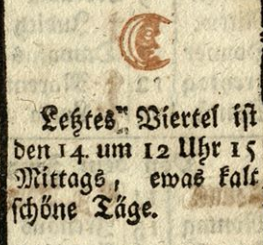 Letztes Viertel ist
den 14. um 12 Uhr 15
Mittags, ewas kalt
schöne Täge.